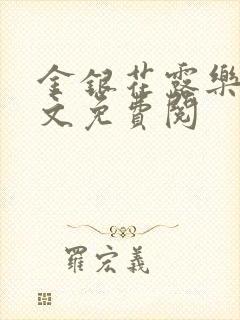 金銀花露樂
文免費閱
羅宏義